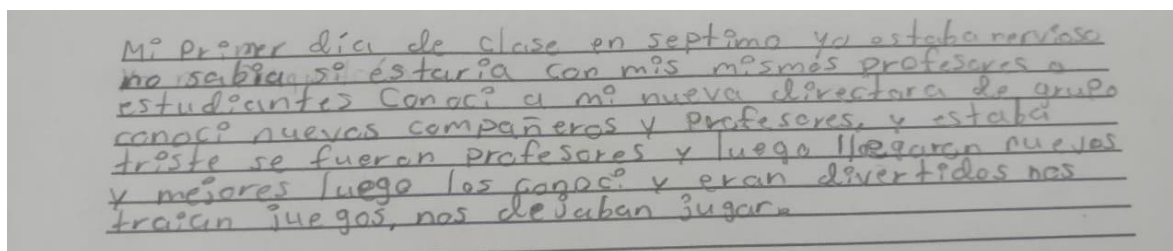 Mi Primer día de clase en septimo yo estaba nervioso
no sabia si éstaria con mis mismos profesores o
estudiantes Conoci a mi nueva directora de grupo
conoci nuevos compañeros y profesores, y estaba
triste se fueron profesores y luego llegaron nuevos
y mejores luego los conoci y eran divertidos nos
traian juegos, nos dejaban jugar.